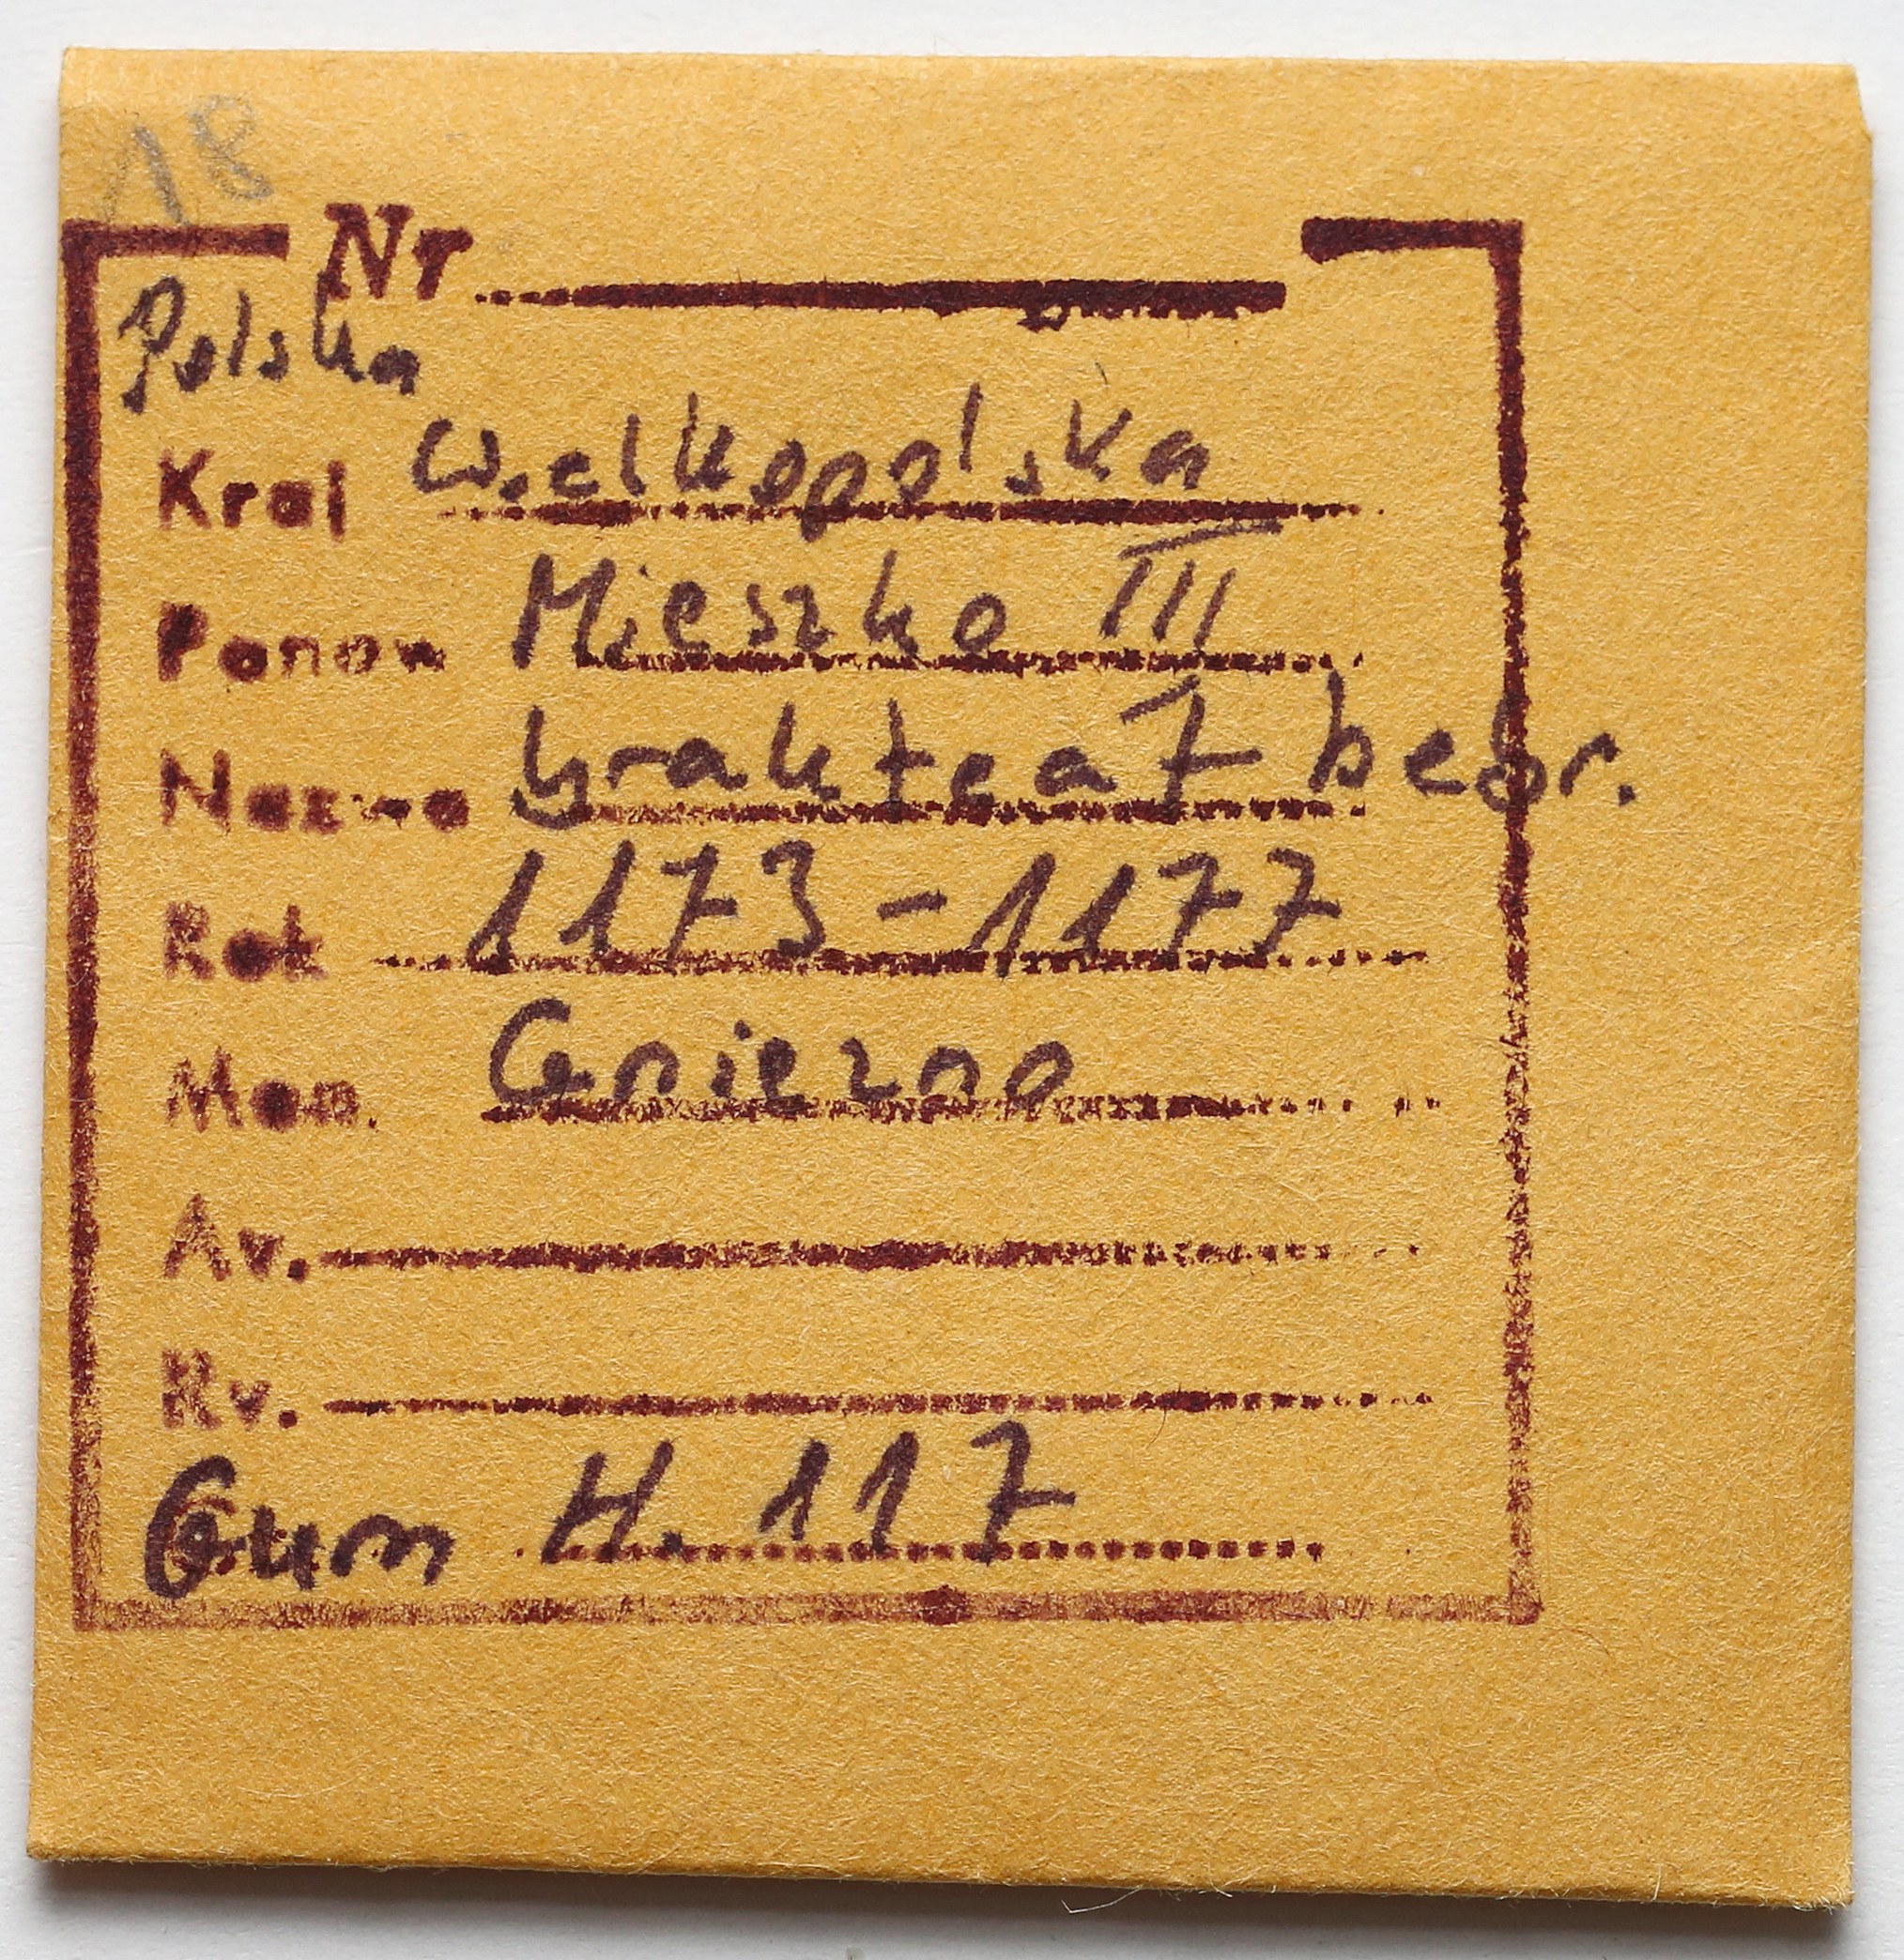 18
Nr
Polska
Kraj Wielkopolska
Panow Mieszko III
Nazwa brakteat hebr.
Rok 1173-1177
Men. Gniezno
Av.
Rv.
Gum H. 117